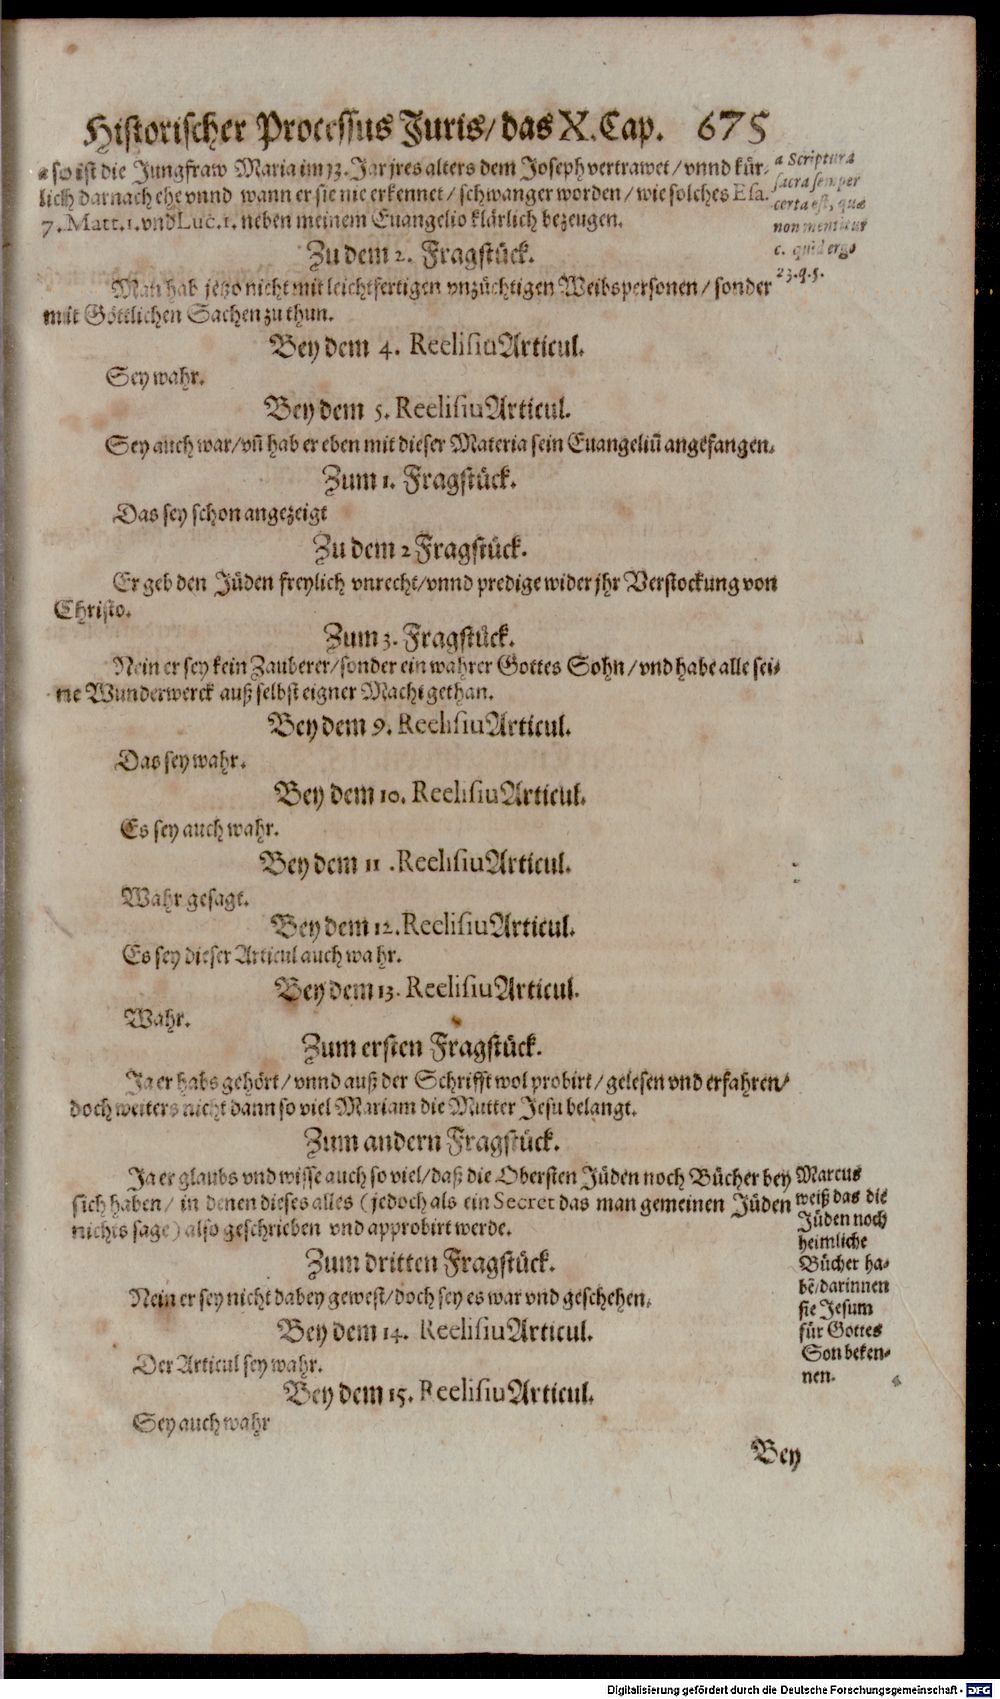 Historischer Processus Juris/ das X. Cap. 675
a so ist die Jungfraw Maria im 13. Jar jres alters dem Joseph vertrawet/ vnnd kür-
lich darnach ehe vnnd wann er sie nie erkennet/ schwanger worden/ wie solches Esa.
7. Matt. 1. vnd Luc. 1. neben meinem Euangelio klärlich bezeugen.
a Scriptura
sacra semper
certa est, quæ
non mentitur
c. quid ergo
23. q. 5.
Zu dem 2. Fragstück.
Man hab jetzo nicht mit leichtfertigen vnzüchtigen Weibspersonen/ sonder
mit Göttlichen Sachen zu thun.
Bey dem 4. Reelisiu Articul.
Sey wahr.
Bey dem 5. Reelisiu Articul.
Sey auch war/ vñ hab er eben mit dieser Materia sein Euangeliũ angefangen.
Zum 1. Fragstück.
Das sey schon angezeigt
Zu dem 2 Fragstück.
Er geb den Jüden freylich vnrecht/ vnnd predige wider jhr Verstockung von
Christo.
Zum 3. Fragstück.
Nein er sey kein Zauberer/ sonder ein wahrer Gottes Sohn/ vnd habe alle sei-
ne Wunderwerck auß selbst eigner Macht gethan.
Bey dem 9. Reelisiu Articul.
Das sey wahr.
Bey dem 10. Reelisiu Articul.
Es sey auch wahr.
Bey dem 11 . Reelisiu Articul.
Wahr gesagt.
Bey dem 12. Reelisiu Articul.
Es sey dieser Articul auch wahr.
Bey dem 13. Reelisiu Articul.
Wahr.
Zum ersten Fragstück.
Ja er habs gehört/ vnnd auß der Schrifft wol probirt/ gelesen vnd erfahren/
doch weiters nicht dann so viel Mariam die Mutter Jesu belangt.
Zum andern Fragstück.
Ja er glaubs vnd wisse auch so viel/ daß die Obersten Jüden noch Bücher bey
sich haben/ in denen dieses alles (jedoch als ein Secret das man gemeinen Jüden
nichts sage) also geschrieben vnd approbirt werde.
Marcus
weiß das die
Jüden noch
heimliche
Bücher ha-
bẽ/ darinnen
sie Jesum
für Gottes
Son beken-
nen.
Zum dritten Fragstück.
Nein er sey nicht dabey gewest/ doch sey es war vnd geschehen.
Bey dem 14. Reelisiu Articul.
Der Articul sey wahr.
Bey dem 15. Reelisiu Articul.
Sey auch wahr
Bey
Digitalisierung gefördert durch die Deutsche Forschungsgemeinschaft - DFG